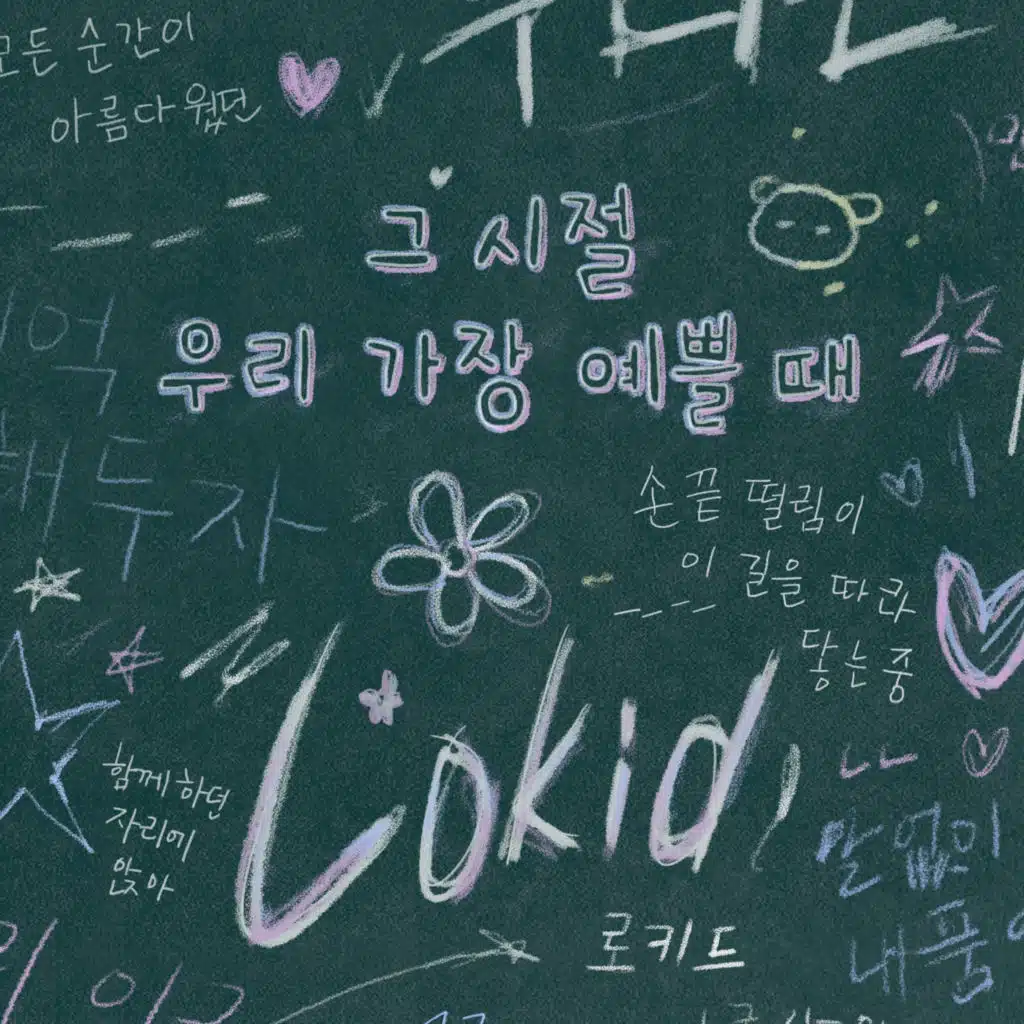 모든 순간이
아름다웠던
그 시절
우리 가장 예쁠 때
손끝 떨림이
이 길을 따라
닿는 중
Lokid
함께하던
자리에
앉아
말없이
내 품
로키드